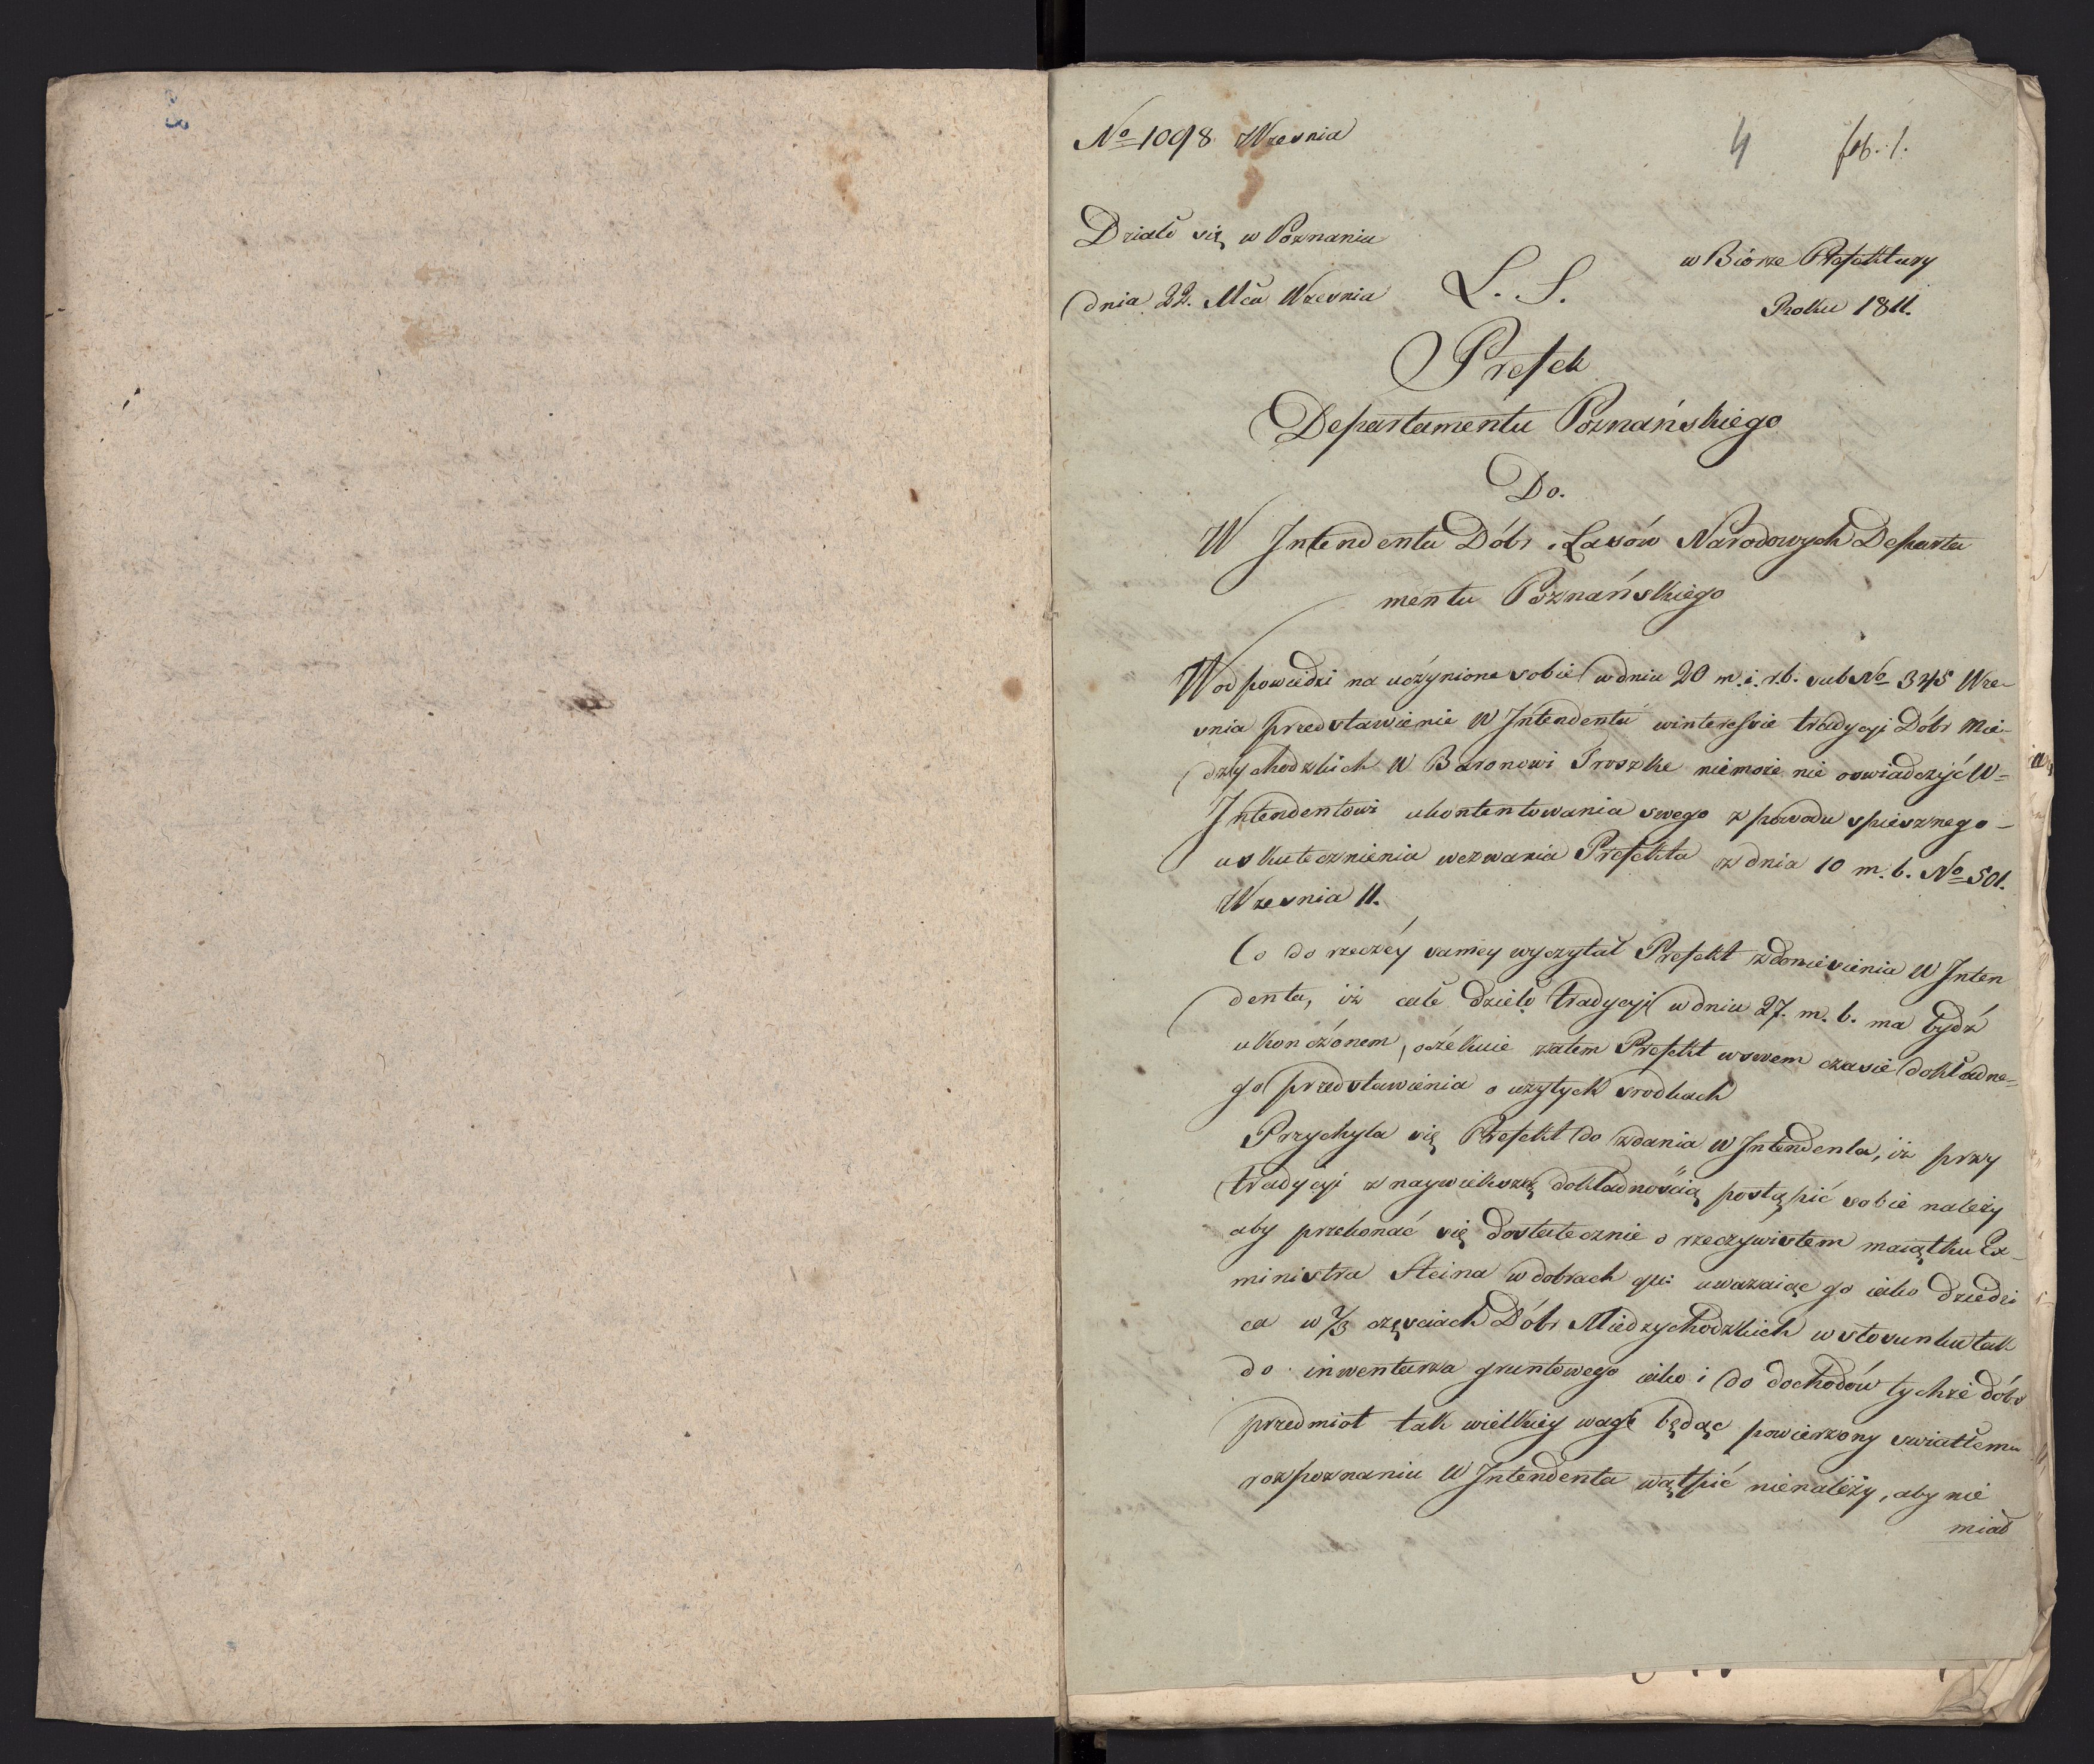 3
No 1098 Wresnia
4 fol. 1.
Działo się w Poznaniu
w Biorze Prefektury
dnia 22. Mca Wresnia L. S.
Roku 1811.
Prefek
Departamentu Poznańskiego
Do.
W Intendenta Dóbr i Lasów Narodowych Departa
mentu Poznańskiego
W odpowiedzi na uczynione sobie w dniu 20 m. i. r. b. sub No 345 Wre-
snia przedstawienie W Intendenta winteressie tradycyi Dóbr Mie-
dzychodzkich W Baronowi Troszke niemoże nie oswiadczyć W-
Intendentowi ukontentowania swego z powodu spiesznego -
uskutecznienia wezwania Prefekta z dnia 10 m. b. No 501.
Wresnia 11.
Co do rzeczéy samey wyczytał Prefekt z doniesienia W Inten
denta, iż całe dzieło tradycyi w dniu 27. m. b. ma bydź
ukonczónem, oczékuie zatem Prefekt wswem czasie dokładne-
go przedstawienia o użytych srodkach
Przychyla się Prefekt do zdania W Intendenta, iż przy
tradycyi z naywiekszą dokładnością postąpić sobie należy
aby przekonać się dostatecznie o rzeczywistem maiątku Ex-
ministra Steina w dobrach qu: uwazaiąc go iako dziedzi
ca w 2/3 częsciach Dóbr Miedzychodzkich w stosunku tak
do inwentarza gruntowego iako i do dochodów tychże dóbr
przedmiot tak wielkiey wagi będąc powierzony swiatłemu
rozpoznaniu W Intendenta wątpić nienależy, aby nie
miał